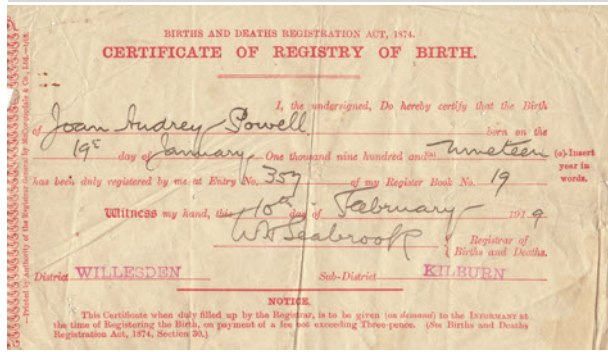 BIRTHS AND DEATHS REGISTRATION ACT, 1874.
CERTIFICATE OF REGISTRY OF BIRTH.
I, the undersigned, Do hereby certify that the Birth
of Joan Audrey Powell born on the
19th day of January One thousand nine hundred and (a) nineteen (a).—Insert year in words.
has been duly registered by me at Entry No. 357 of my Register Book No. 19
Witness my hand, this 10th day of February 1919
W Seabrook Registrar of Births and Deaths.
District WILLESDEN Sub-District KILBURN
NOTICE.
This Certificate when duly filled up by the Registrar, is to be given (on demand) to the INFORMANT at
the time of Registering the Birth, on payment of a fee not exceeding Three-pence. (See Births and Deaths
Registration Act, 1874, Section 30.)
—Printed by Authority of the Registrar General by McCorquodale & Co., Ltd.